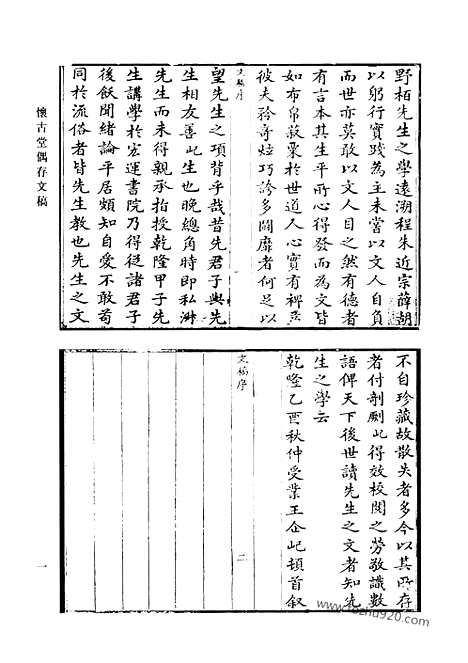 野栢先生之學遠溯程朱近宗薛胡
以躬行實踐為主未嘗以文人自負
而世亦莫敢以文人目之然有德者
有言本其生平所心得發而為文皆
如布帛菽粟於世道人心實有裨益
彼夫矜奇炫巧誇多鬪靡者何足以
文稿序
一
望先生之項背乎哉昔先君子與先
生相友善屺生也晚總角時即私淑
先生而未得親承指授乾隆甲子先
生講學於宏運書院乃得從諸君子
後飫聞緒論平居頗知自愛不敢苟
同於流俗者皆先生教也先生之文
不自珍藏故散失者多今以其所存
者付剞劂屺得效校閱之勞敬識數
語俾天下後世讀先生之文者知先
生之學云
乾隆乙酉秋仲受業王企屺頓首叙
文稿序
二
懷古堂偶存文稿
一